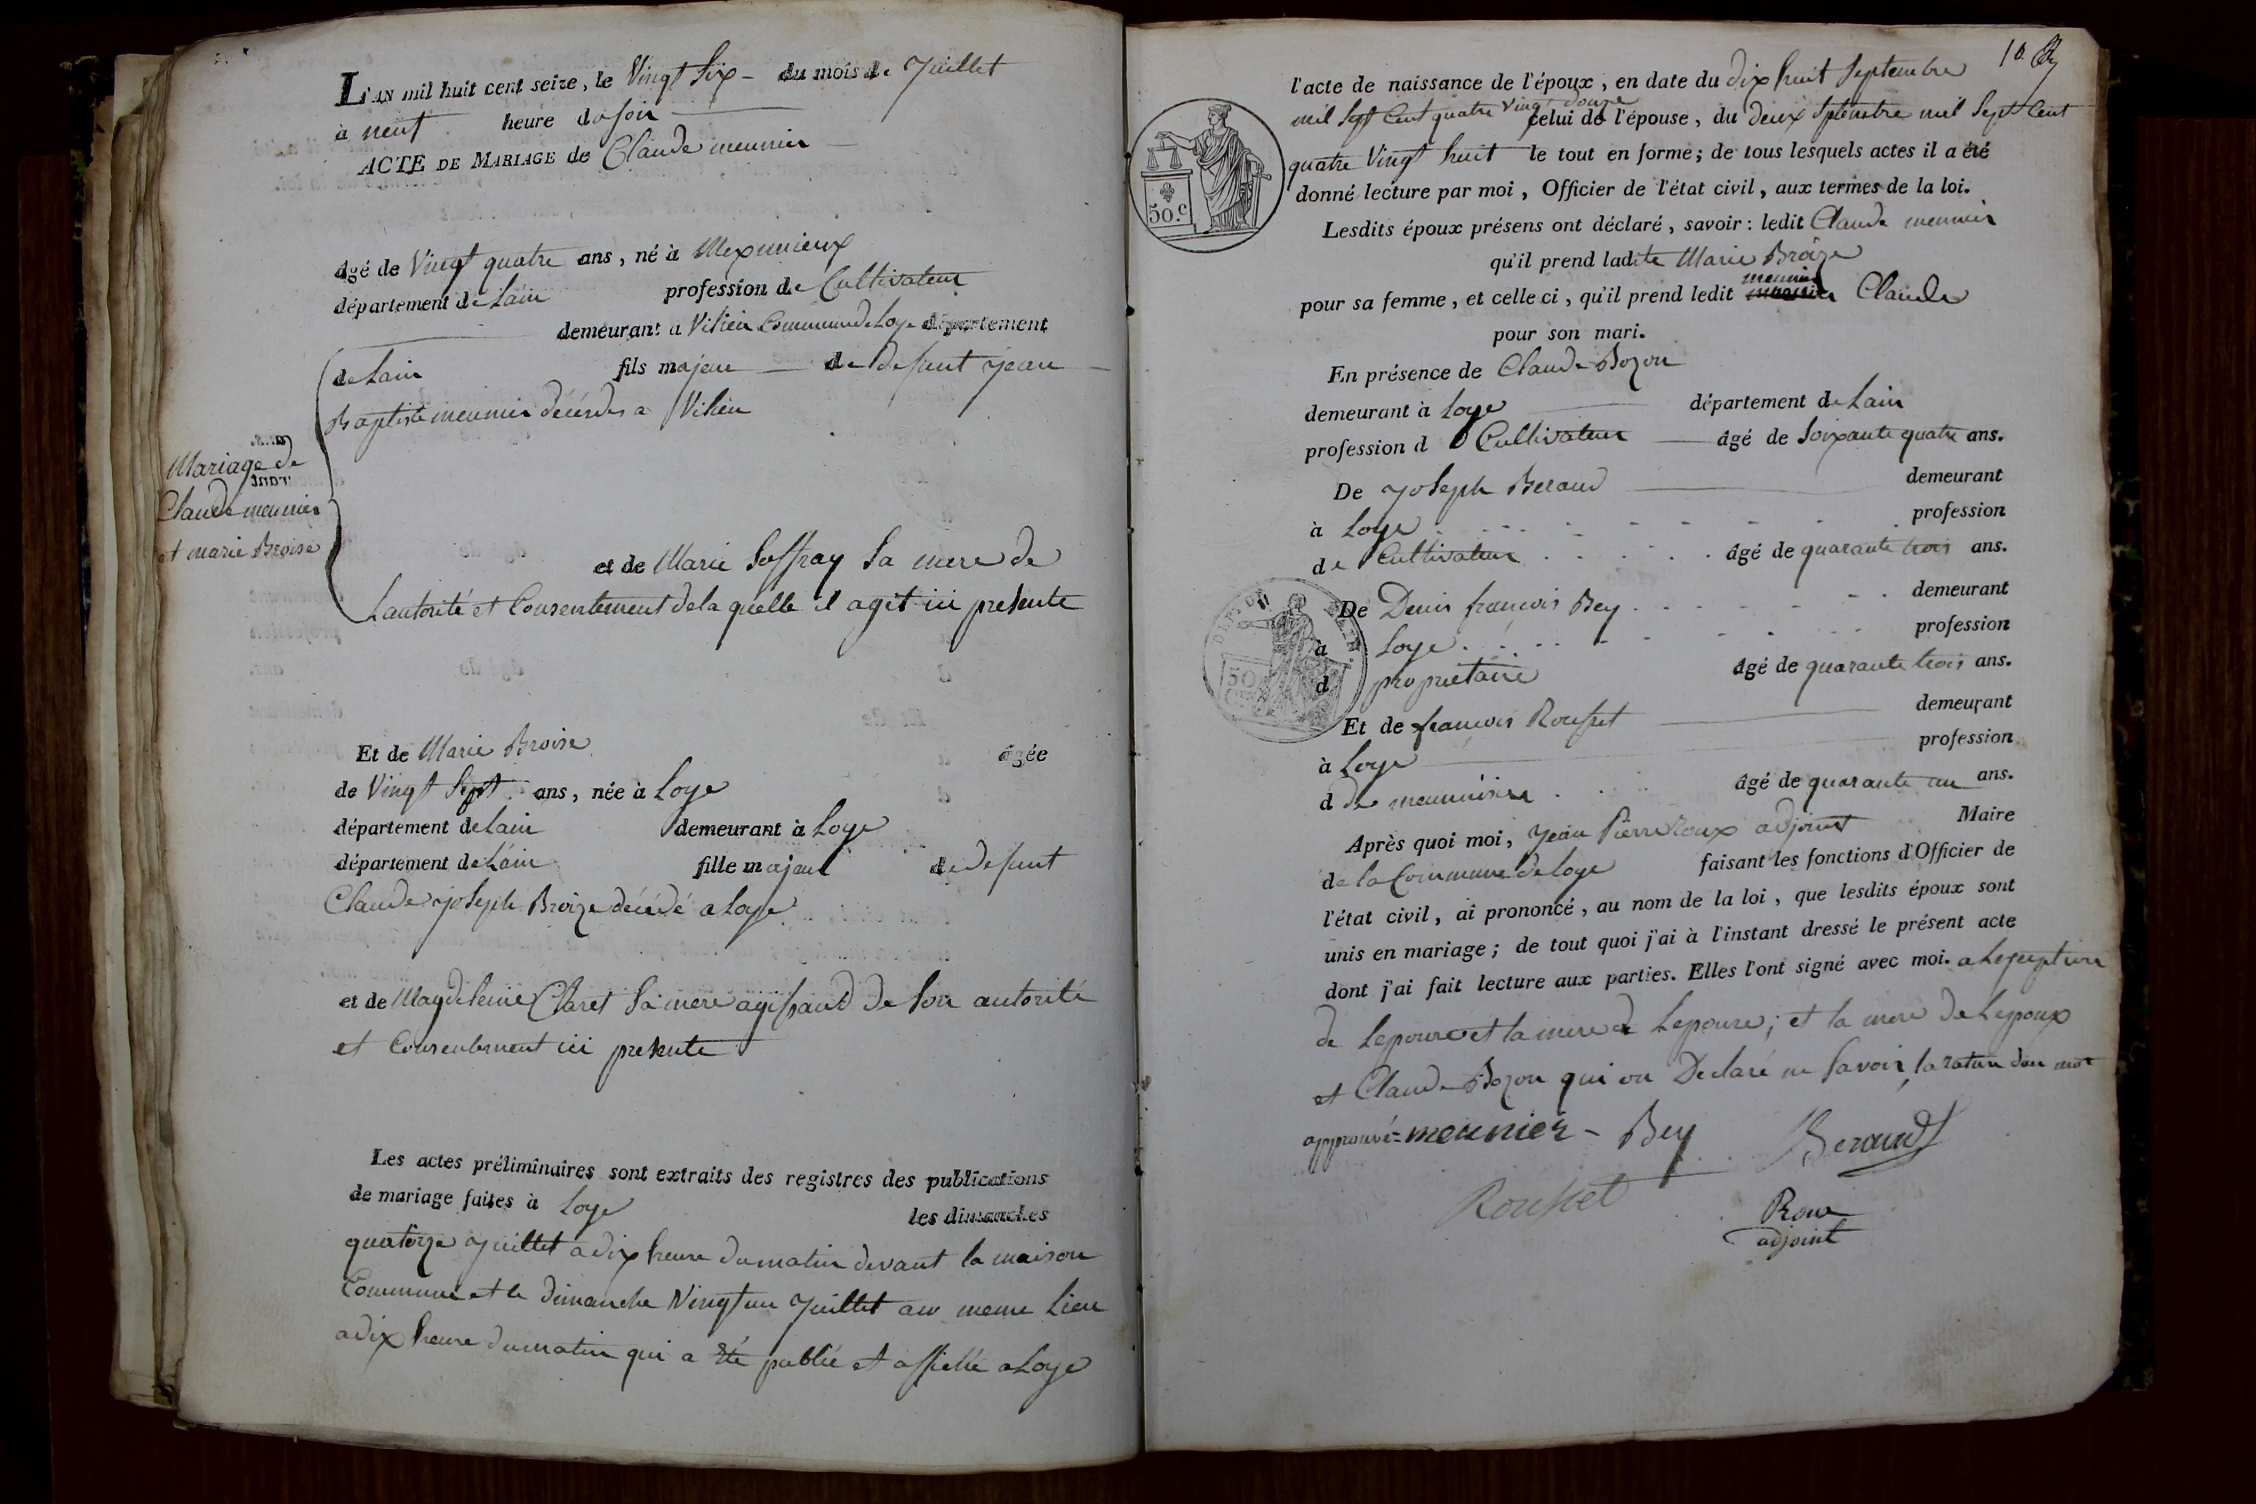 L'AN mil huit cent seize, le Vingt Six - du mois de Juillet
à neuf heure du soir
ACTE DE MARIAGE de Claude meunier
âgé de Vingt quatre ans, né à Meximieux
département de Lain profession de Cultivateur
demeurant a Vilieu Commune de Loye département
de Lain fils majeur de defunt jean
Baptiste meunier décédés a Vilieu
Mariage de
Claude meunier
et marie Broise
et de Marie Soffray Sa mere de
Lautorité et Consentement de la quelle il agit ici presente
Et de Marie Broise âgée
de Vingt Sept ans, née à Loye
département de Lain demeurant à Loye
département de Lain fille majeur de defunt
Claude joseph Broize décédé a Loye
et de Magdeleine Claret Sa mere agissant de Son autorité
et Consentement ici presente
Les actes préliminaires sont extraits des registres des publications
de mariage faites à Loye les dimanches
quatorze Juillet a dix heure du matin devant la maison
Commune et le dimanche Vingt un Juillet au meme Lieu
a dix heure du matin qui a été publié et affiché a Loye
10
l'acte de naissance de l'époux, en date du dix huit Septembre
mil Sept Cent quatre Vingt douze celui de l'épouse, du deux Septembre mil Sept Cent
quatre Vingt huit le tout en forme; de tous lesquels actes il a été
donné lecture par moi, Officier de l'état civil, aux termes de la loi.
50.c
Lesdits époux présens ont déclaré, savoir: ledit Claude meunier
qu'il prend ladite Marie Broize
pour sa femme, et celle ci, qu'il prend ledit meunier Claude
pour son mari.
En présence de Claude Bozon
demeurant à Loye département de Lain
profession d Cultivateur âgé de Soixante quatre ans.
De Joseph Beraud demeurant
à Loye profession
de Cultivateur âgé de quarante trois ans.
De Denis françois Bey demeurant
à Loye profession
d propriétaire âgé de quarante trois ans.
50
Et de françois Rousset demeurant
à Loye profession
d de meunuisier âgé de quarante un ans.
Après quoi moi, Jean Pierre Roux adjoint Maire
de la Commune de Loye faisant les fonctions d'Officier de
l'état civil, ai prononcé, au nom de la loi, que lesdits époux sont
unis en mariage; de tout quoi j'ai à l'instant dressé le présent acte
dont j'ai fait lecture aux parties. Elles l'ont signé avec moi. a Lexeption
de Lepouse et la mere de Lepouse; et la mere de Lepoux
et Claude Bozon qui on Declaré ne Savoir, la rature d'un mot
approuvé = meunier - Bey Beraud
Rousset
Roux
adjoint